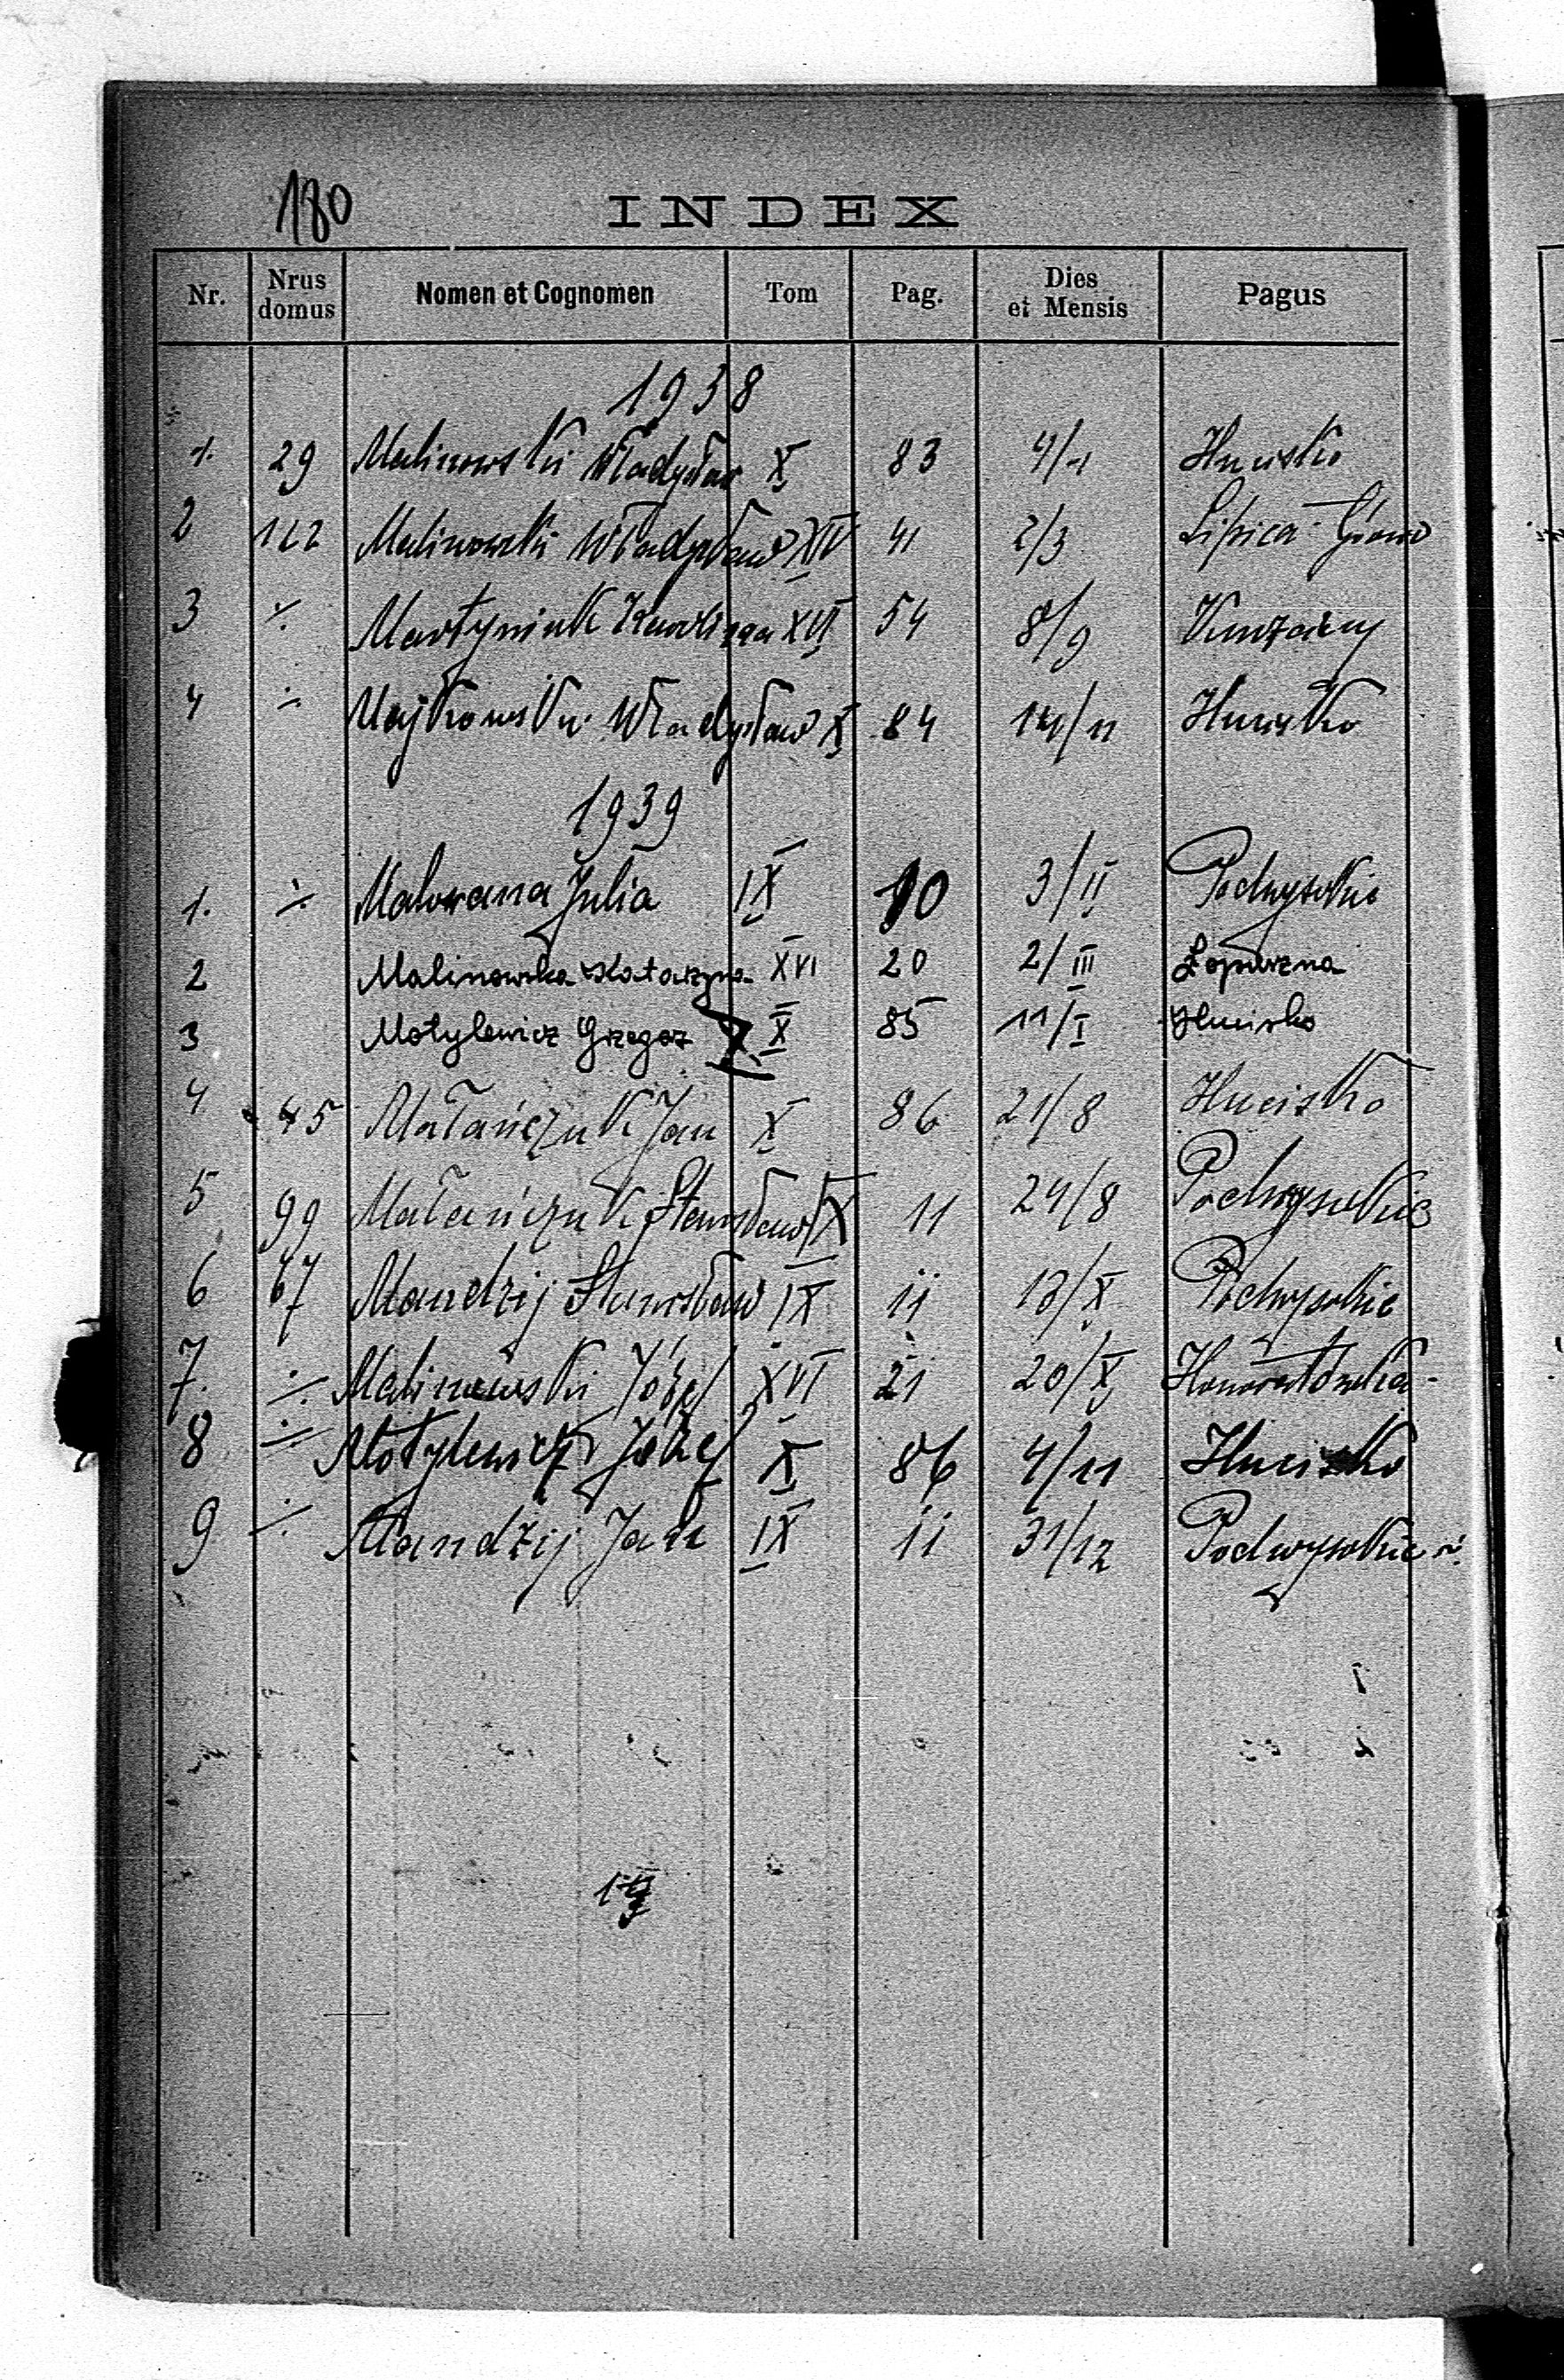 180
INDEX
Nr. Nrus domus Nomen et Cognomen Tom Pag. Dies et Mensis Pagus
1938
1. 29 Malinowski Władysław X 83 4/1 Hucisko
2 112 Malinowski Władysław XIV 41 2/3 Lipica Górna
3 ·/· Martyniuk Karolina XVI 54 8/9
4 ·/· Majkowski Władysław X 84 14/11 Hucisko
1939
1. ·/· Malowana Julia IX 10 3/II Podwysokie
2 Malinowska Katarzyna XVI 20 2/III Łopuszna
3 Motylewicz Grzegorz X 85 11/I Hucisko
4 45 Matańczuk Jan X 86 21/8 Hucisko
5 99 Matańczuk Stanisław IX 11 24/8 Podwysokie
6 67 Mandzij Stanisław IX 11 13/X Podwysokie
7. ·/· Malinowski Józef XVI 21 20/X Honoratówka
8 ·/· Motylewicz Józef X 86 4/11 Hucisko
9 ·/· Mandzij Jan IX 11 31/12 Podwysokie